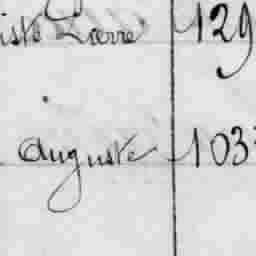 iste Pierre 129
Auguste 103